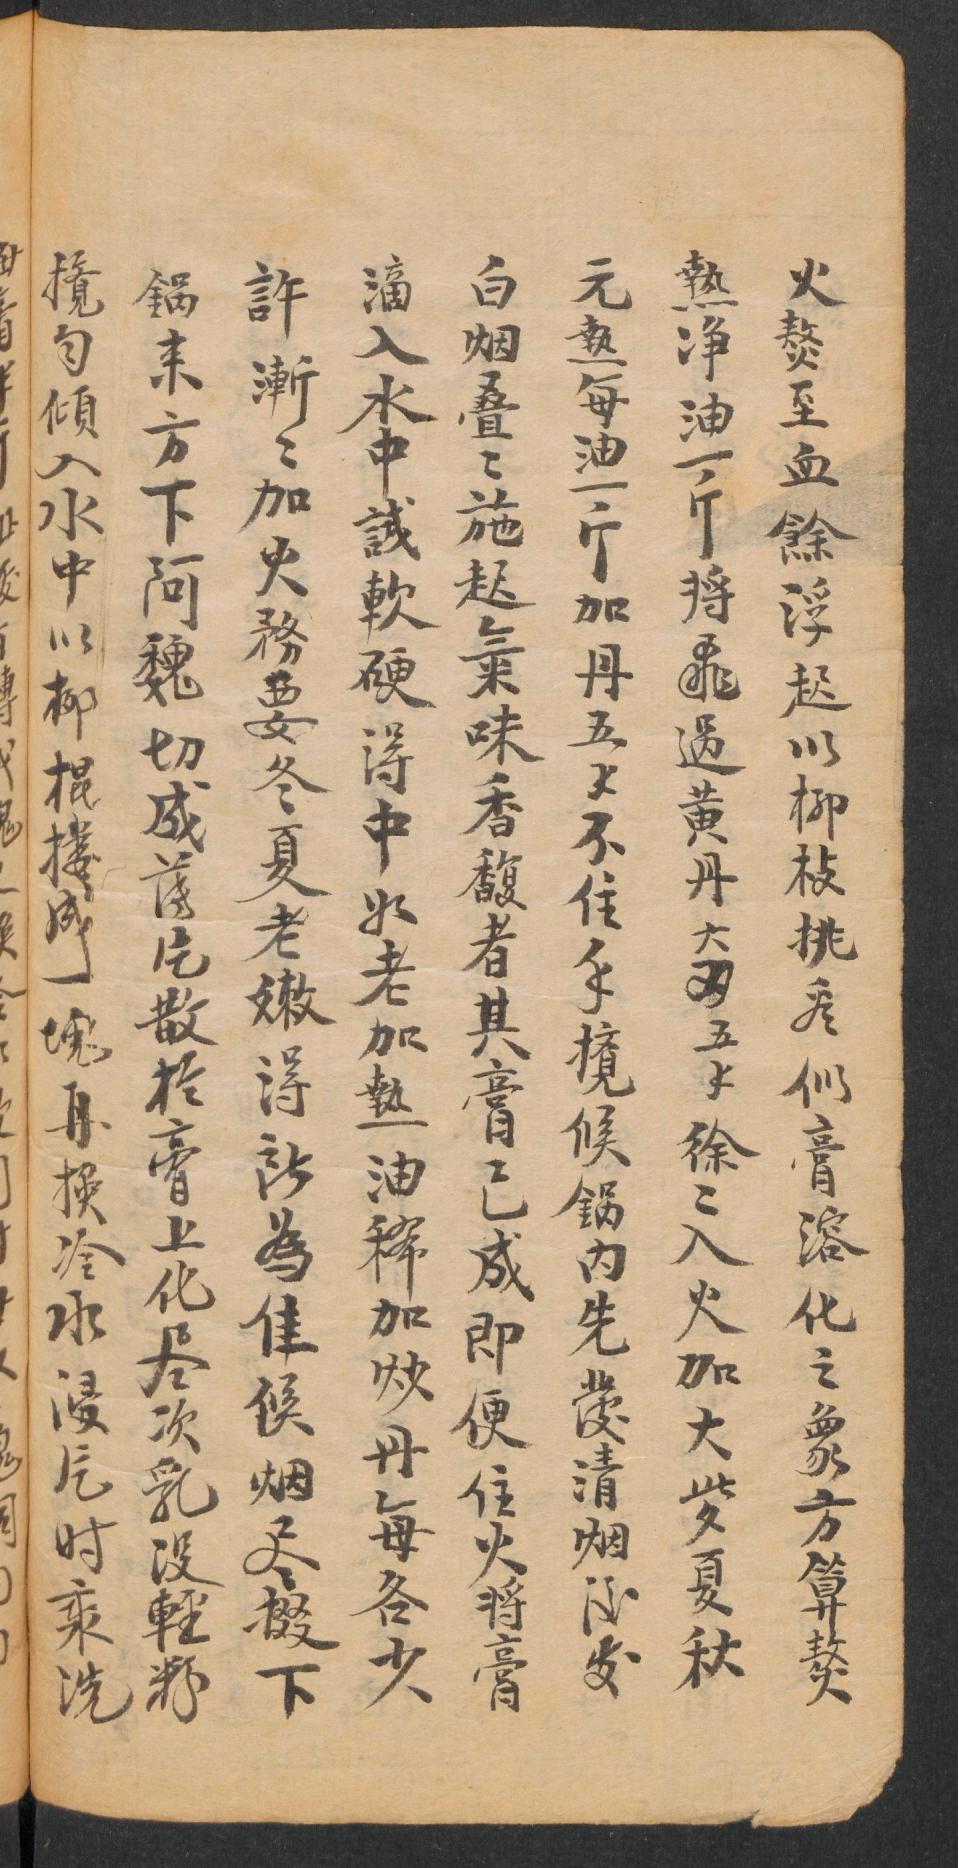 火熬至血餘浮起以柳枝挑看似膏溶化之象方算熬
熱净油一斤將飛過黃丹六两五才徐〻入火加大些夏秋
元熱每油一斤加丹五才不住手攪候鍋内先發清烟後发
白烟叠〻施起氣味香馥者其膏已成即便住火將膏
滴入水中試軟硬得中如老加熱油稀加炒丹每各少
許漸〻加火務要冬夏老嫩得所為佳候烟尽掇下
鍋来方下阿魏切成薄片散於膏上化尽次乳没輕粉
攪匀傾入水中以柳棍摟成一塊再换冷水浸片时乘洗